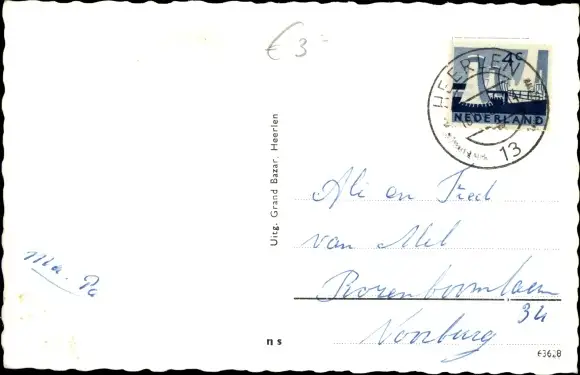 € 3-
4c
NEDERLAND
HEERLEN
13
Uitg. Grand Bazar, Heerlen
Ali en Fred
van Mel
Rozenboomlaan
34
Voorburg
Ma. Pa
ns
63628